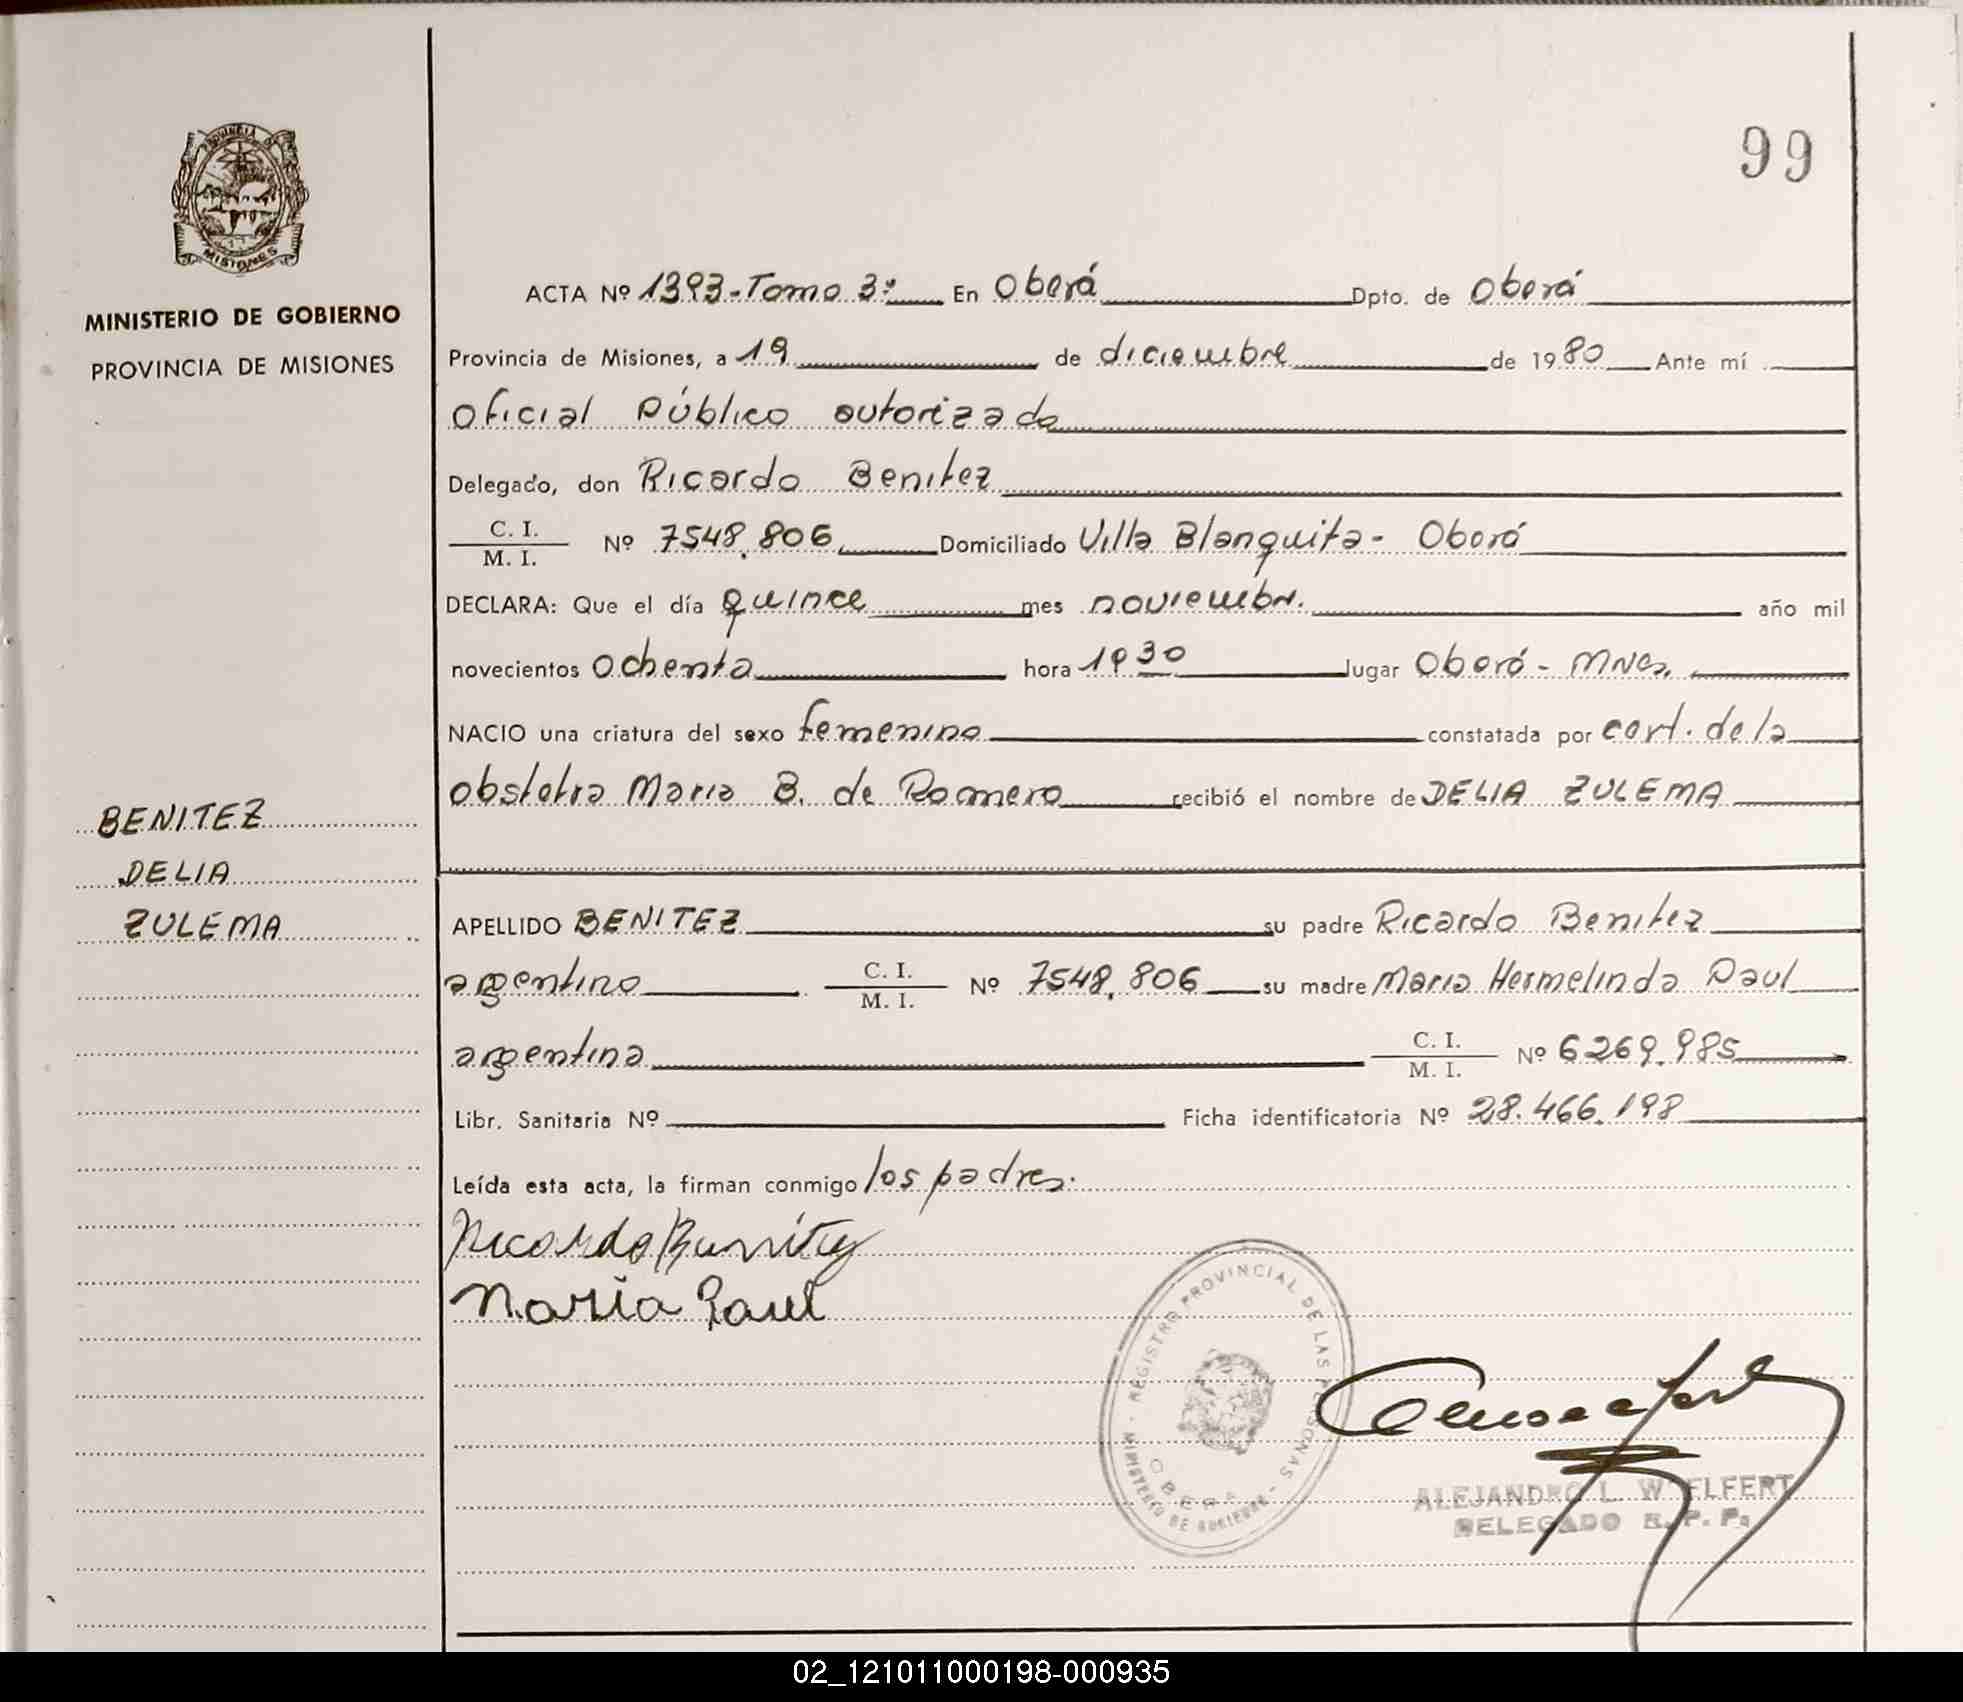 99
PROVINCIA DE
MISIONES
MINISTERIO DE GOBIERNO
PROVINCIA DE MISIONES
ACTA Nº 1393-Tomo 3º En Oberá Dpto. de Oberá
Provincia de Misiones, a 19 de diciembre de 1980 Ante mí
Oficial Público autorizado
Delegado, don Ricardo Benitez
C. I.
M. I. Nº 7548.806 Domiciliado Villa Blanquita- Oberá
DECLARA: Que el día quince mes noviembr. año mil
novecientos ochenta hora 19 30 lugar Oberá - Mnes.
NACIO una criatura del sexo femenino constatada por cert. de la
obstetra Maria B. de Romero recibió el nombre de DELIA ZULEMA
BENITEZ
DELIA
ZULEMA
APELLIDO BENITEZ su padre Ricardo Benitez
argentino C. I.
M. I. Nº 7548.806 su madre Maria Hermelinda Paul
argentina C. I.
M. I. Nº 6269.985
Libr. Sanitaria Nº Ficha identificatoria Nº 28.466.198
Leída esta acta, la firman conmigo los padres.
Ricardo Benitez
Maria Paul
REGISTRO PROVINCIAL DE LAS PERSONAS - MINISTERIO DE GOBIERNO -
OBERA
ALEJANDRO L. WELFERT
DELEGADO R. P. P.
02_121011000198-000935